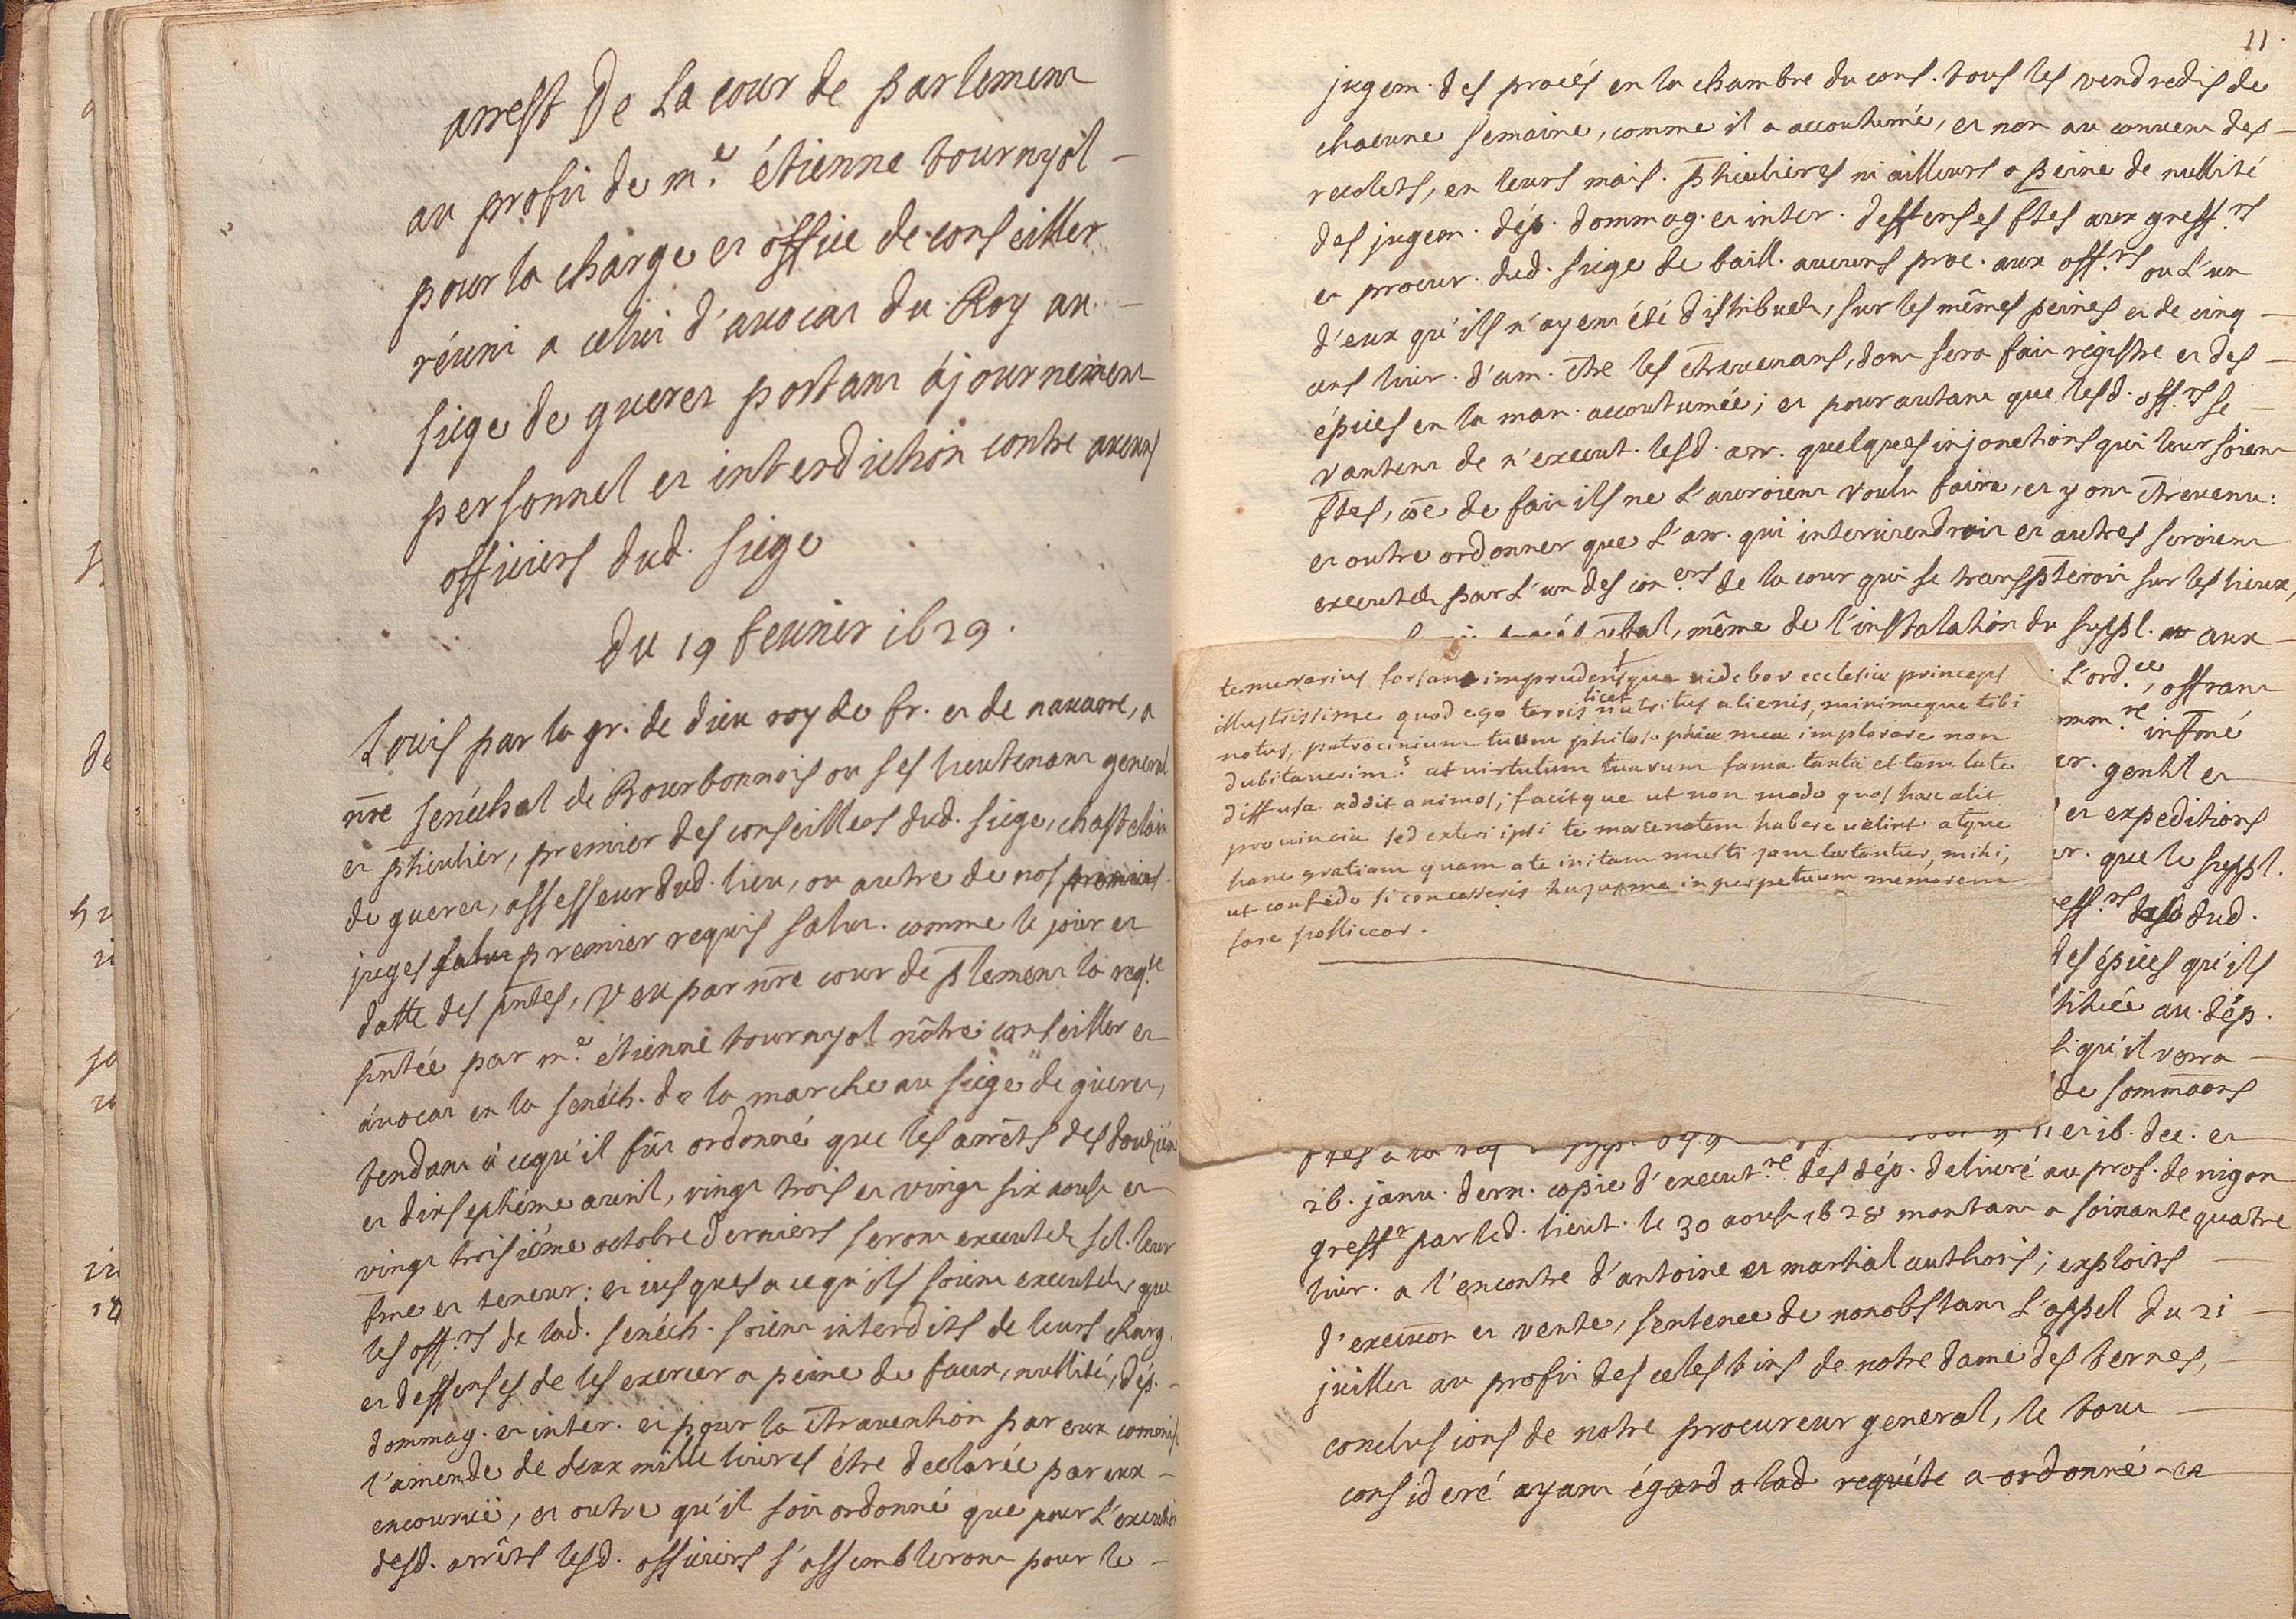 arrest De La cour de parlement
au profit de m.e étienne tournyol -
pour la charge et office de conseiller
réuni a celui d'avocat du Roy au -
siege de gueret portant ájournement
personnel et interdiction contre aucuns
officiers dud. siege
du 19 feurier 1629.
Louis par la gr. de dieu roy de fr. et de nauarre, a
nre senéchal de Bourbonnois ou ses lieutenant general
et pticulier, premier des conseillers dud. siege, chastelain
de gueret, assesseur dud. lieu, ou autre de nos premiers
juges salut premier requis salut. comme le jour et
datte des pntes, Veu par nre cour de plement la reqte
pntée par m.e étienne tournyol nôtre conseiller et
ávocat en la senéch. de la marche au siege de gueret,
tendant à cequ'il fût ordonné que les arrêts des douziém
et dixseptiéme auril, vingt trois et vingt six aoust et
vingt troisiéme octobre derniers seront executez sel. leur
fme et teneur: et iusques a cequ'ils soient executez, que
les off.rs de lad. senéch. soient interdits de leurs charg.
et deffenses de les exercer a peine de faux, nullité, dép. -
dommag. et inter. et pour la ctrauention par eux commis
l'amende de deux mille liures étre declarée par eux -
encouruë, et outre qu'il soit ordonné que pour L'execution
desd. arrêts lesd. officiers s'assembleront pour le -
11.
jugem. des procés en la chambre du cons. tous les vendredis de
chacune semaine, comme il a accoutumé, et non au conuent des -
recolets, en leurs mais. pticulieres ni ailleurs a peine de nullité
des jugem. dép. dommag. et inter. deffenses ftes aux greff.rs
et procur. dud. siege de baill. aucuns proc. aux off.rs ou L'un
d'eux qu'ils n'ayent été distribuez, sur les mêmes peines et de cinq -
cens liur. d'am. ctre les ctreuenans, dont sera fait registre et des -
épices en la man. accoutumée; et pourautant que lesd. off.rs se -
vantent de n'execut. lesd. arr. quelques injonctions qui leur soient
ftes, coe de fait ils ne L'auroient voulu faire, et y ont ctreuenu:
et outre ordonner que L'arr. qui interuiendroit et autres seroient
executez par L'un des con.ers de la cour qui se transpteroit sur les lieux,
procés vbal, même de l'instalation du suppl. aux -
L'ord.ce, offrant
comm.re infmé
gentil et
et expeditions
que le suppl.
greff.rs dud.
des épices qu'ils
au dép.
qu'il verra -
de sommaons
temerarius forsan imprudensque videbor ecclesiæ princeps
illustrissime quod ego terris licet nutritus alienis, minimeque tibi
notus, patrocinium tuum philosophiæ meæ implorare non
dubitauerim? at uirtutum tuarum fama tanta et tam late
diffusa addit animos; facitque ut non modo quos hæc alit
prouincia sed exteri ipsi te mæcenatem habere uelint atque
hanc gratiam quam a te initam multi jam lætantur, mihi,
ut confido si concesseris hujus me in perpetuum memorem
fore polliceor.
11 et 16. dec. et
26. janu. dern. copie d'execut.re des dép. deliuré au prof. de nigon
greff.r par led. lieut. le 30 aoust 1628 montant a soixante quatre
liur. a l'encontre d'antoine et martial authors; exploits -
d'execuon et vente, sentence de nonobstant L'appel du 21 -
juillet au profit des celestins de notre dame des ternes, -
conclusions de notre procureur general, le tout -
consideré ayant égard a lad requéte a ordonné et